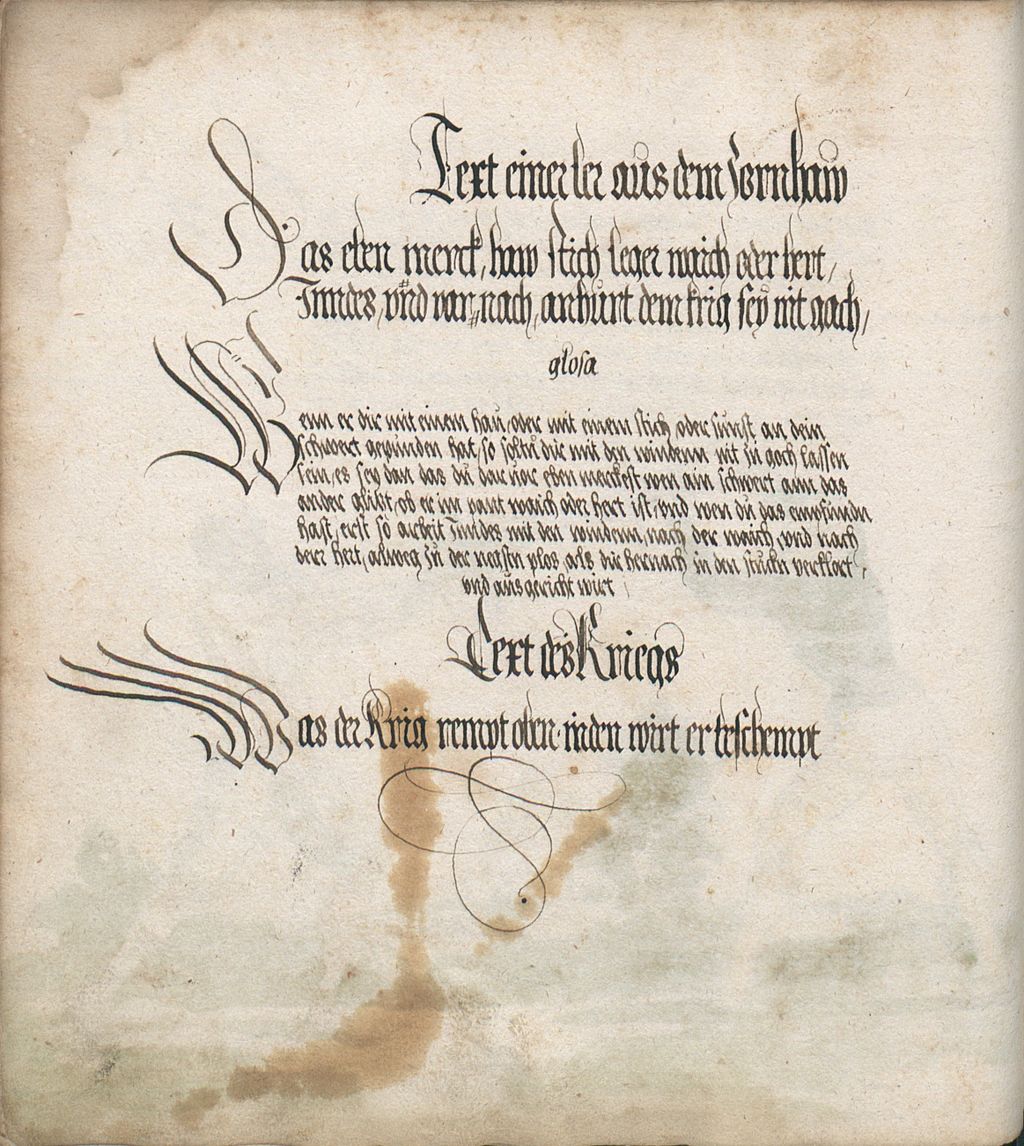 Text einer ler aus dem Zornhaw
Das eben merck, haw stich leger waich oder hert,
Inndes, vnd var nach, anhurt dem krig sey nit gach,
glosa
Wenn er dir mit einem hau, oder mit einem stich, oder sunst an dein
schwert gepunden hat, so soltu dir mit den windenn nit zu goch lassen
sein, es sey dan das du dar vor eben merckest wen ain schwert ann das
ander glitzt, ob er im pant waich oder hert ist, vnd wen du das empfundn
hast, erst so arbeit Inndes mit den windenn, nach der waich, vnd nach
derr hert, alweg zu der negsten plos, als dir hernach in den stuckn verklort,
vnd ausgericht wirt
Text des Kriegs
Was der Krig rempt oben, niden wirt er beschempt